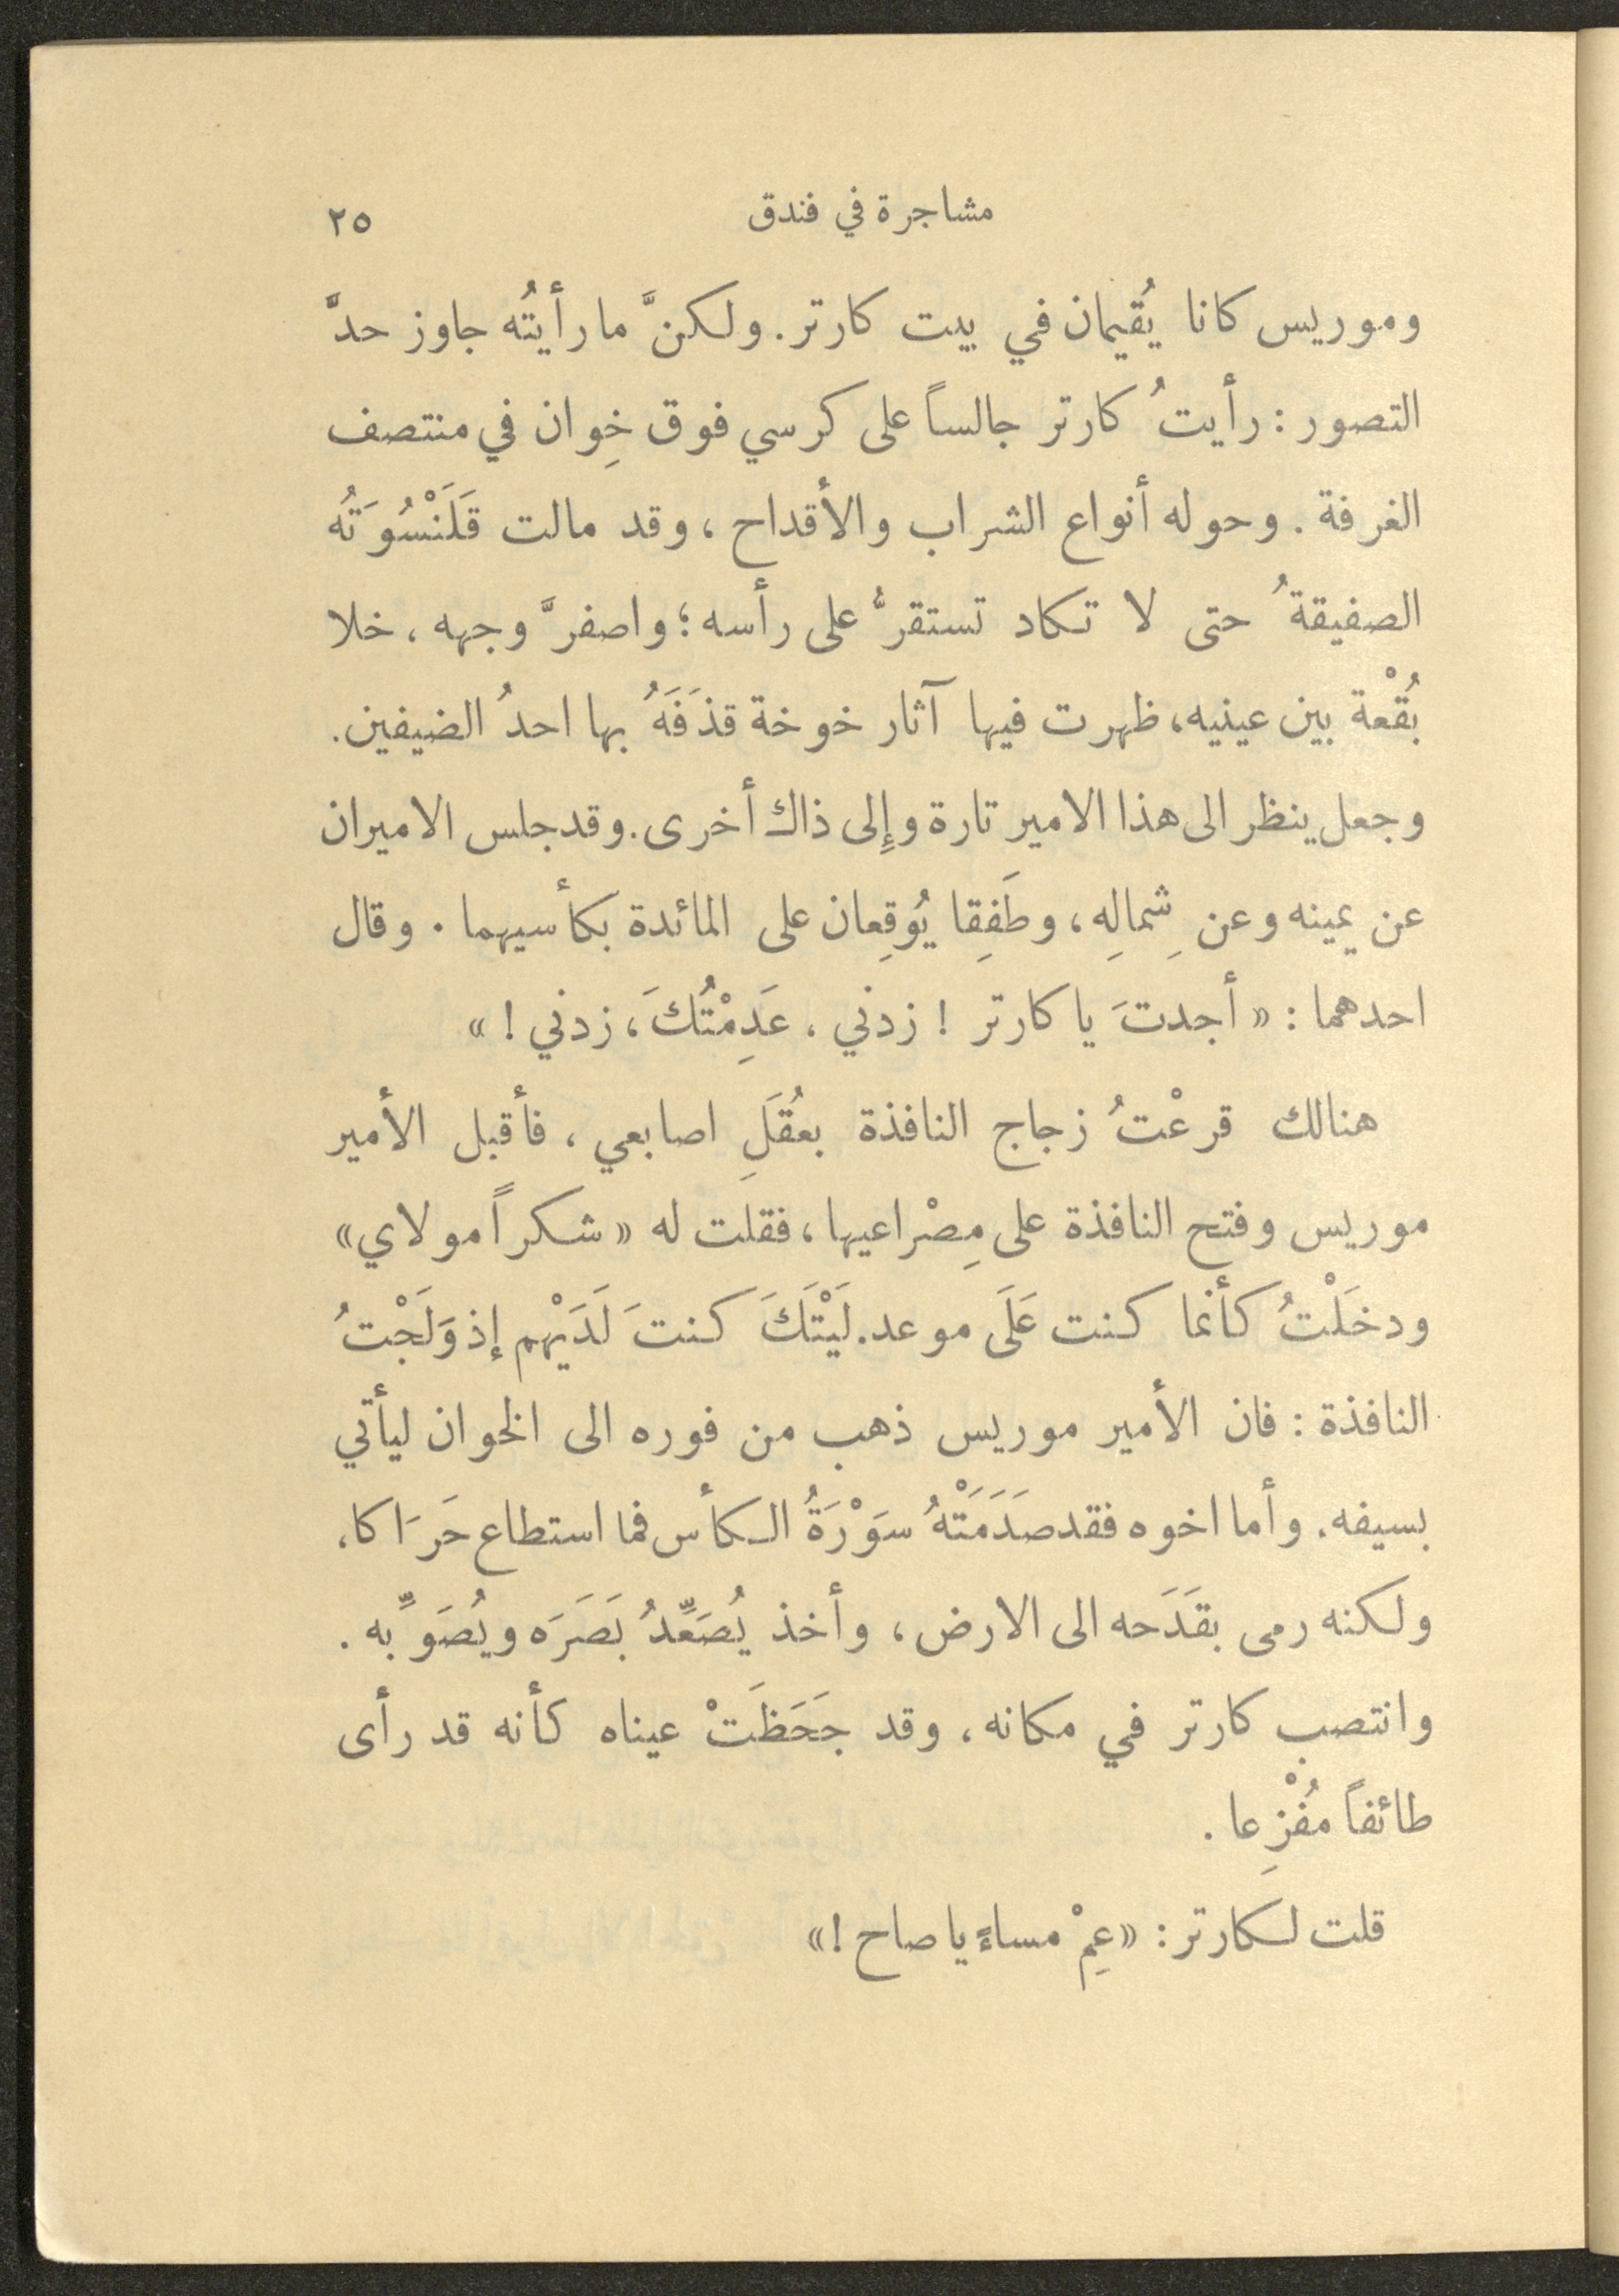 مشاجرة في فندق
٢٥
وموريس كانا يُقيمان في بيت كارتر. ولكنَّ ما رأيتُه جاوز حدَّ
التصور : رأيتُ كارتر جالساً على كرسي فوق خِوان في منتصف
الغرفة . وحوله أنواع الشراب والأقداح ، وقد مالت قَلَنْسُوَتُه
الصفيقةُ حتى لا تكاد تستقرُّ على رأسه ؛ واصفرَّ وجهه ، خلا
بُقْعة بين عينيه، ظهرت فيها آثار خوخة قذَفَهُ بها احدُ الضيفين.
وجعل ينظر الى هذا الامير تارة وإِلى ذاك أخرى. وقد جلس الاميران
عن يمينه وعن شِمالِهِ ، وطَفِقا يُوقِعان على المائدة بكأسيهما . وقال
احدهما : « أجدتَ يا كارتر ! زدني ، عَدِمْتُكَ ، زدني ! »
هنالك قرعْتُ زجاج النافذة بعُقَلِ اصابعي ، فأقبل الأمير
موريس وفتح النافذة على مِصْراعيها ، فقلت له « شكراً مولاي »
ودخَلْتُ كأنما كنت عَلَى موعد. لَيْتَكَ كنتَ لَدَيْهم إذ وَلَجْتُ
النافذة : فان الأمير موريس ذهب من فوره الى الخوان ليأتي
بسيفه. وأما اخوه فقد صَدَمَتْهُ سَوْرَةُ الكأس فما استطاع حَرَاكا،
ولكنه رمى بقَدَحه الى الارض ، وأخذ يُصَعِّدُ بَصَرَه ويُصَوِّبه .
وانتصب كارتر في مكانه ، وقد جَحَظَتْ عيناه كأنه قد رأى
طائفاً مُفْزِعا .
قلت لكارتر : «عِمْ مساءً يا صاح !»